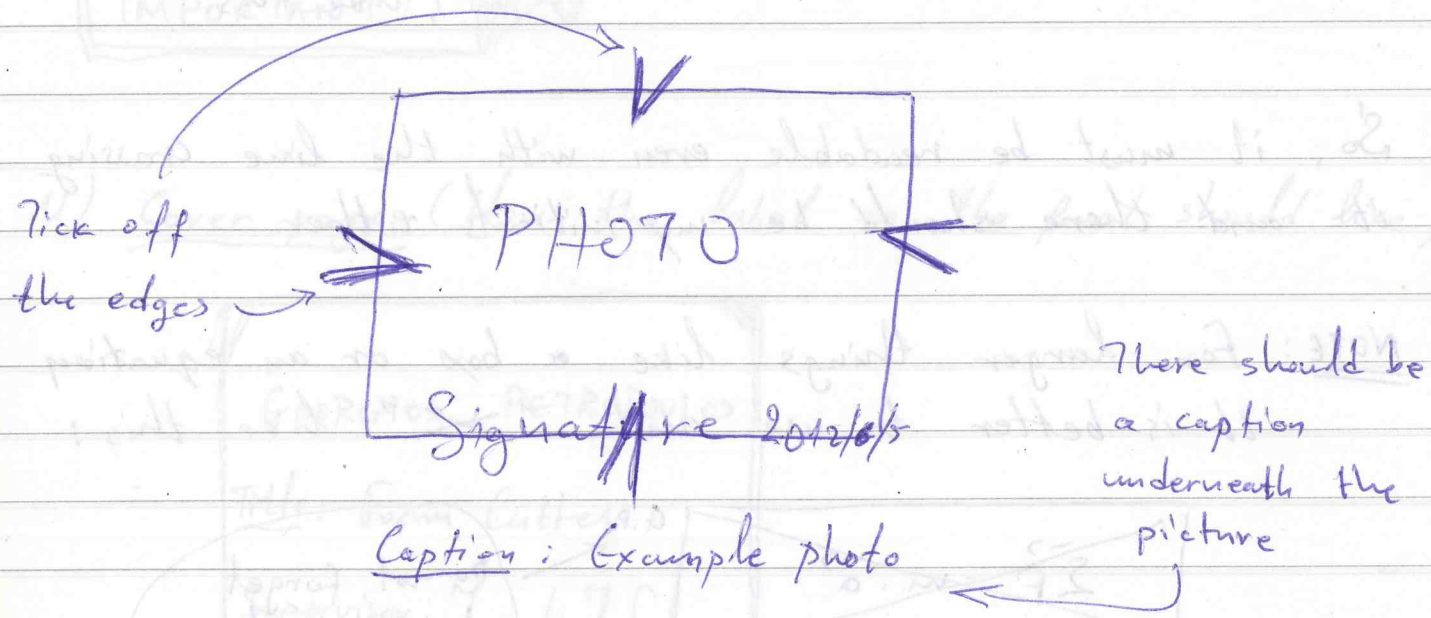 Tick off
the edges
PHOTO
Signature 2012/6/5
Caption: Example photo
There should be
a caption
underneath the
picture